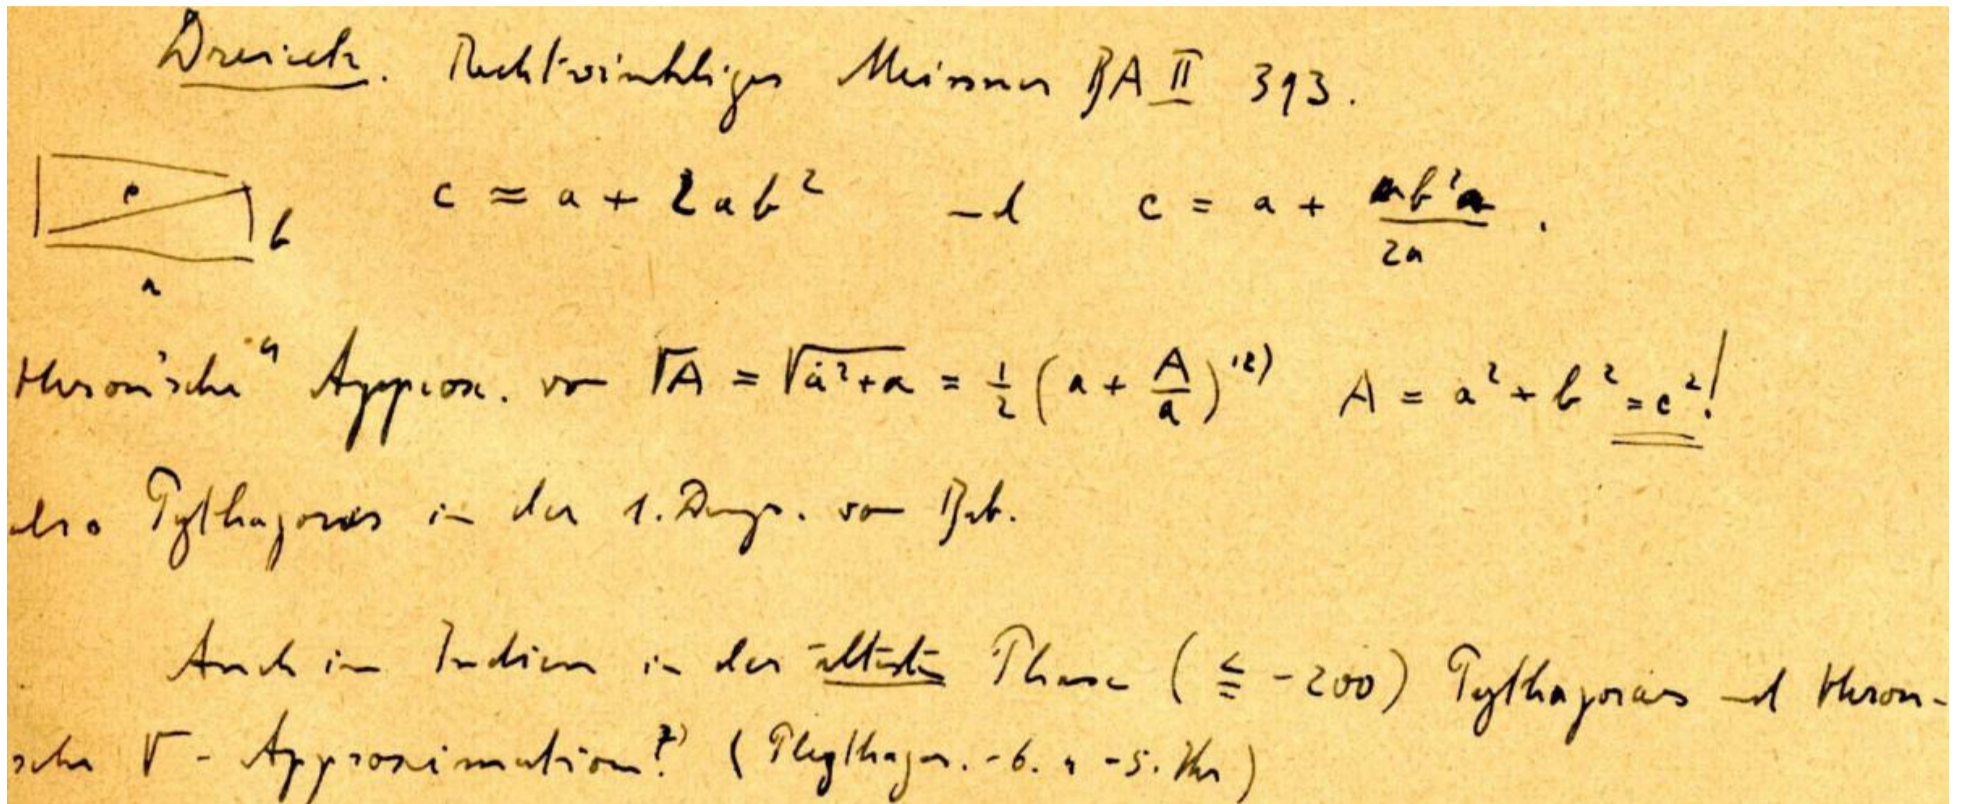 Dreieck. Rechtwinkliges Meissner BA II 393.
c ≈ a + 2ab² und c = a + b²/2a .
e b a
Heronische" Approx. von √A = √a²+a = 1/2 (a + A/a)¹²⁾ A = a² + b² = c²!
also Pythagoras in der 1. Dyn. von Bab.
Auch in Indien in der ältesten Phase (≦ -200) Pythagoras und Heron-
sche √ - Approximation?⁷⁾ (Pythagor. -6. u -5. Jhr)